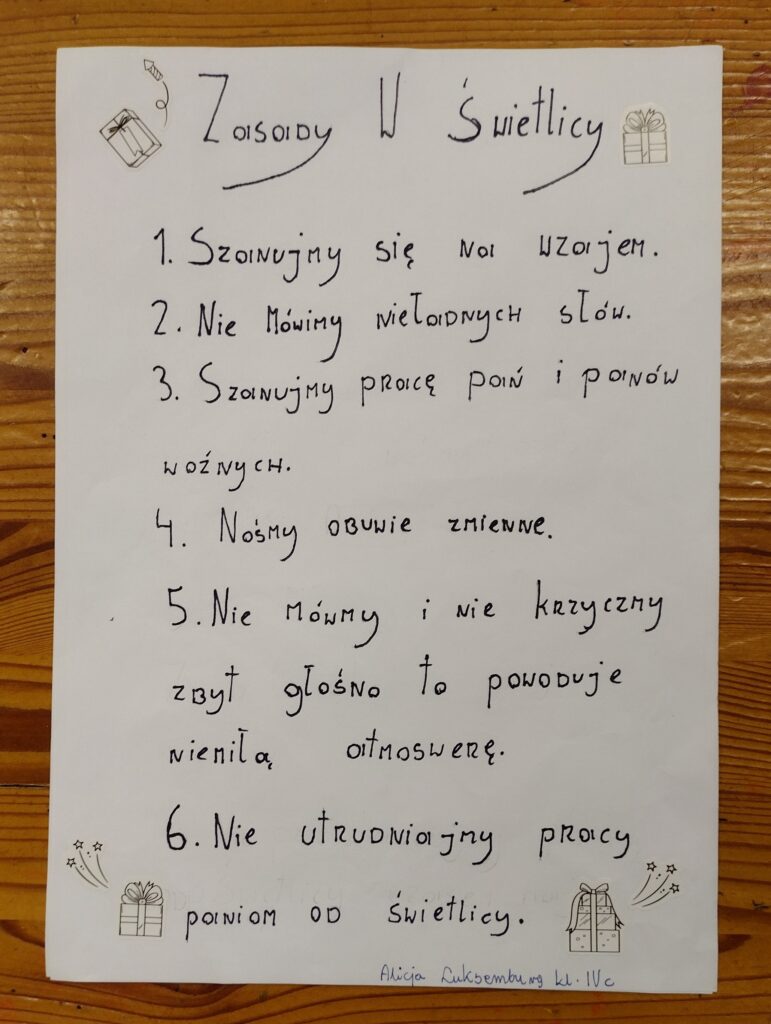 Zasady W Świetlicy
1. Szanujmy się na wzajem.
2. Nie Mówimy nieładnych słów.
3. Szanujmy pracę pań i panów
woźnych.
4. Nośmy obuwie zmienne.
5. Nie mówmy i nie krzyczmy
zbyt głośno to powoduje
niemiłą atmoswerę.
6. Nie utrudniajmy pracy
paniom od świetlicy.
Alicja Luksemburg kl. IVc